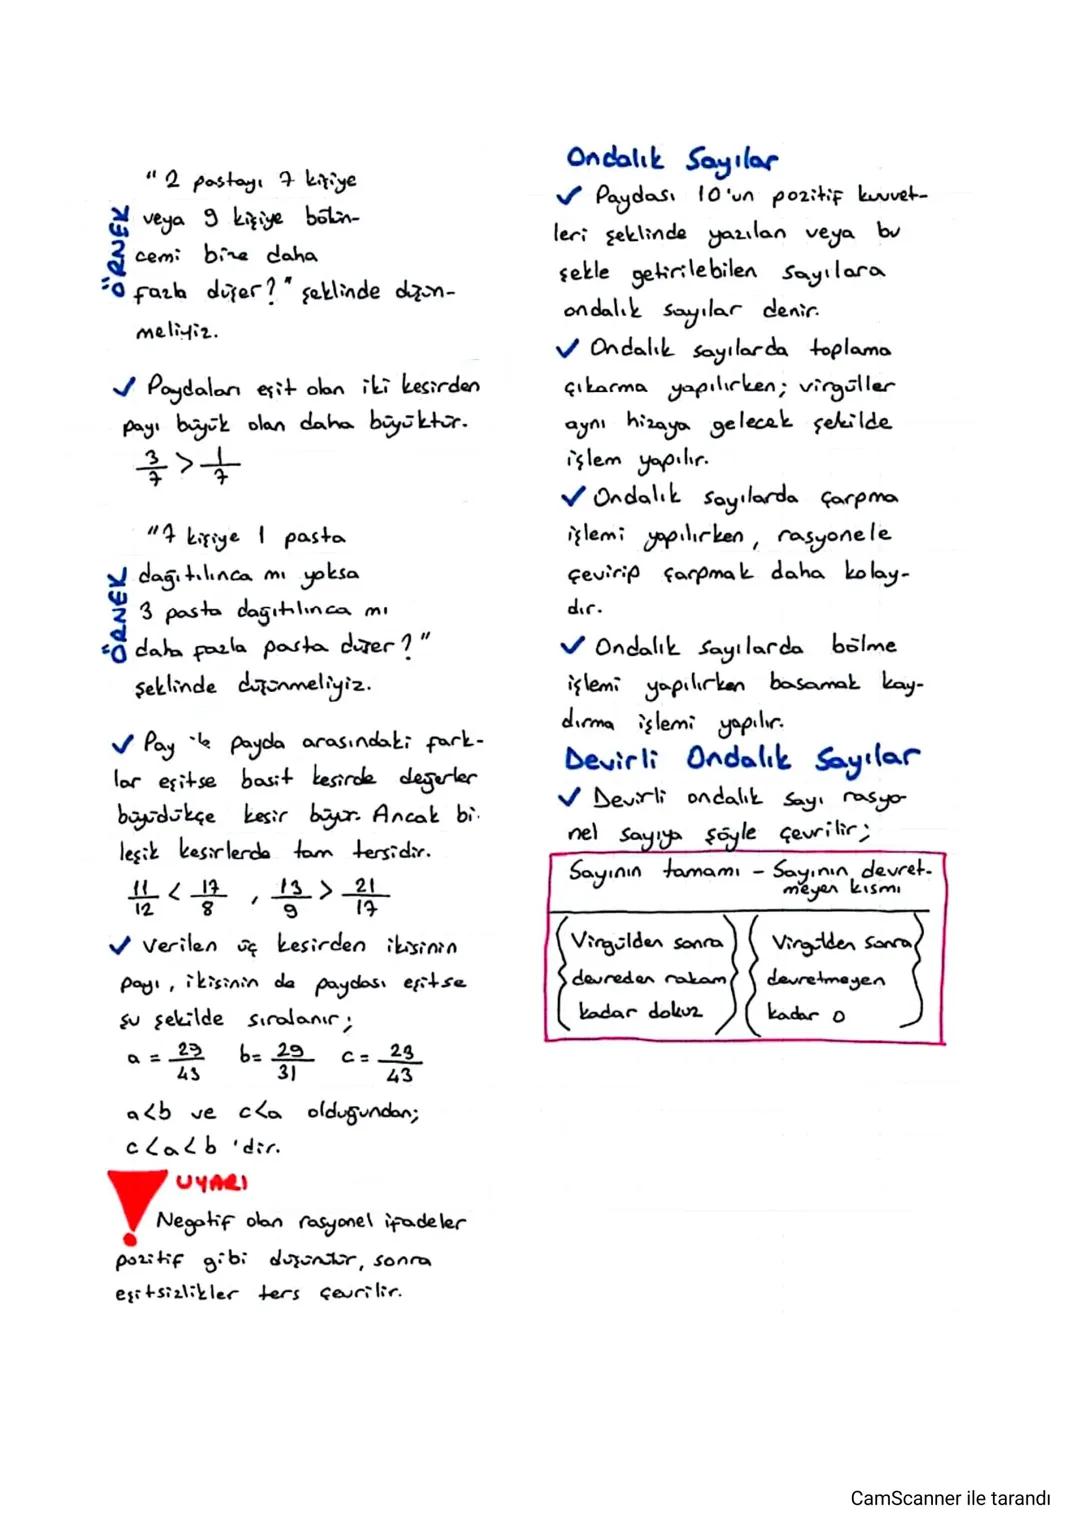 ÖRNEK
"2 pastayı 7 kişiye
veya 9 kişiye bölün-
cemi bize daha
fazla düşer?" şeklinde düşün-
meliyiz.
✓ Paydaları eşit olan iki kesirden
payı büyük olan daha büyüktür.
3/7 > 1/7
ÖRNEK
"7 kişiye 1 pasta
dağıtılınca mı yoksa
3 pasta dağıtılınca mı
daha fazla pasta düşer?"
şeklinde düşünmeliyiz.
✓ Pay ile payda arasındaki fark-
lar eşitse basit kesirde değerler
büyüdükçe kesir büyür. Ancak bi-
leşik kesirlerde tam tersidir.
11/12 < 17/8 , 13/9 > 21/17
✓ Verilen üç kesirden ikisinin
payı, ikisinin de paydası eşitse
şu şekilde sıralanır;
a = 29/43 b = 29/31 c = 23/43
a<b ve c<a olduğundan;
c<a<b 'dir.
UYARI
Negatif olan rasyonel ifadeler
pozitif gibi düşünülür, sonra
eşitsizlikler ters çevrilir.
Ondalık Sayılar
✓ Paydası 10'un pozitif kuvvet-
leri şeklinde yazılan veya bu
şekle getirilebilen sayılara
ondalık sayılar denir.
✓ Ondalık sayılarda toplama
çıkarma yapılırken; virgüller
aynı hizaya gelecek şekilde
işlem yapılır.
✓ Ondalık sayılarda çarpma
işlemi yapılırken, rasyonele
çevirip çarpmak daha kolay-
dır.
✓ Ondalık sayılarda bölme
işlemi yapılırken basamak kay-
dırma işlemi yapılır.
Devirli Ondalık Sayılar
✓ Devirli ondalık sayı rasyo-
nel sayıya şöyle çevrilir;
Sayının tamamı - Sayının devret-
meyen kısmı
(Virgülden sonra devreden rakam kadar dokuz) (Virgülden sonra devretmeyen kadar 0)
CamScanner ile tarandı